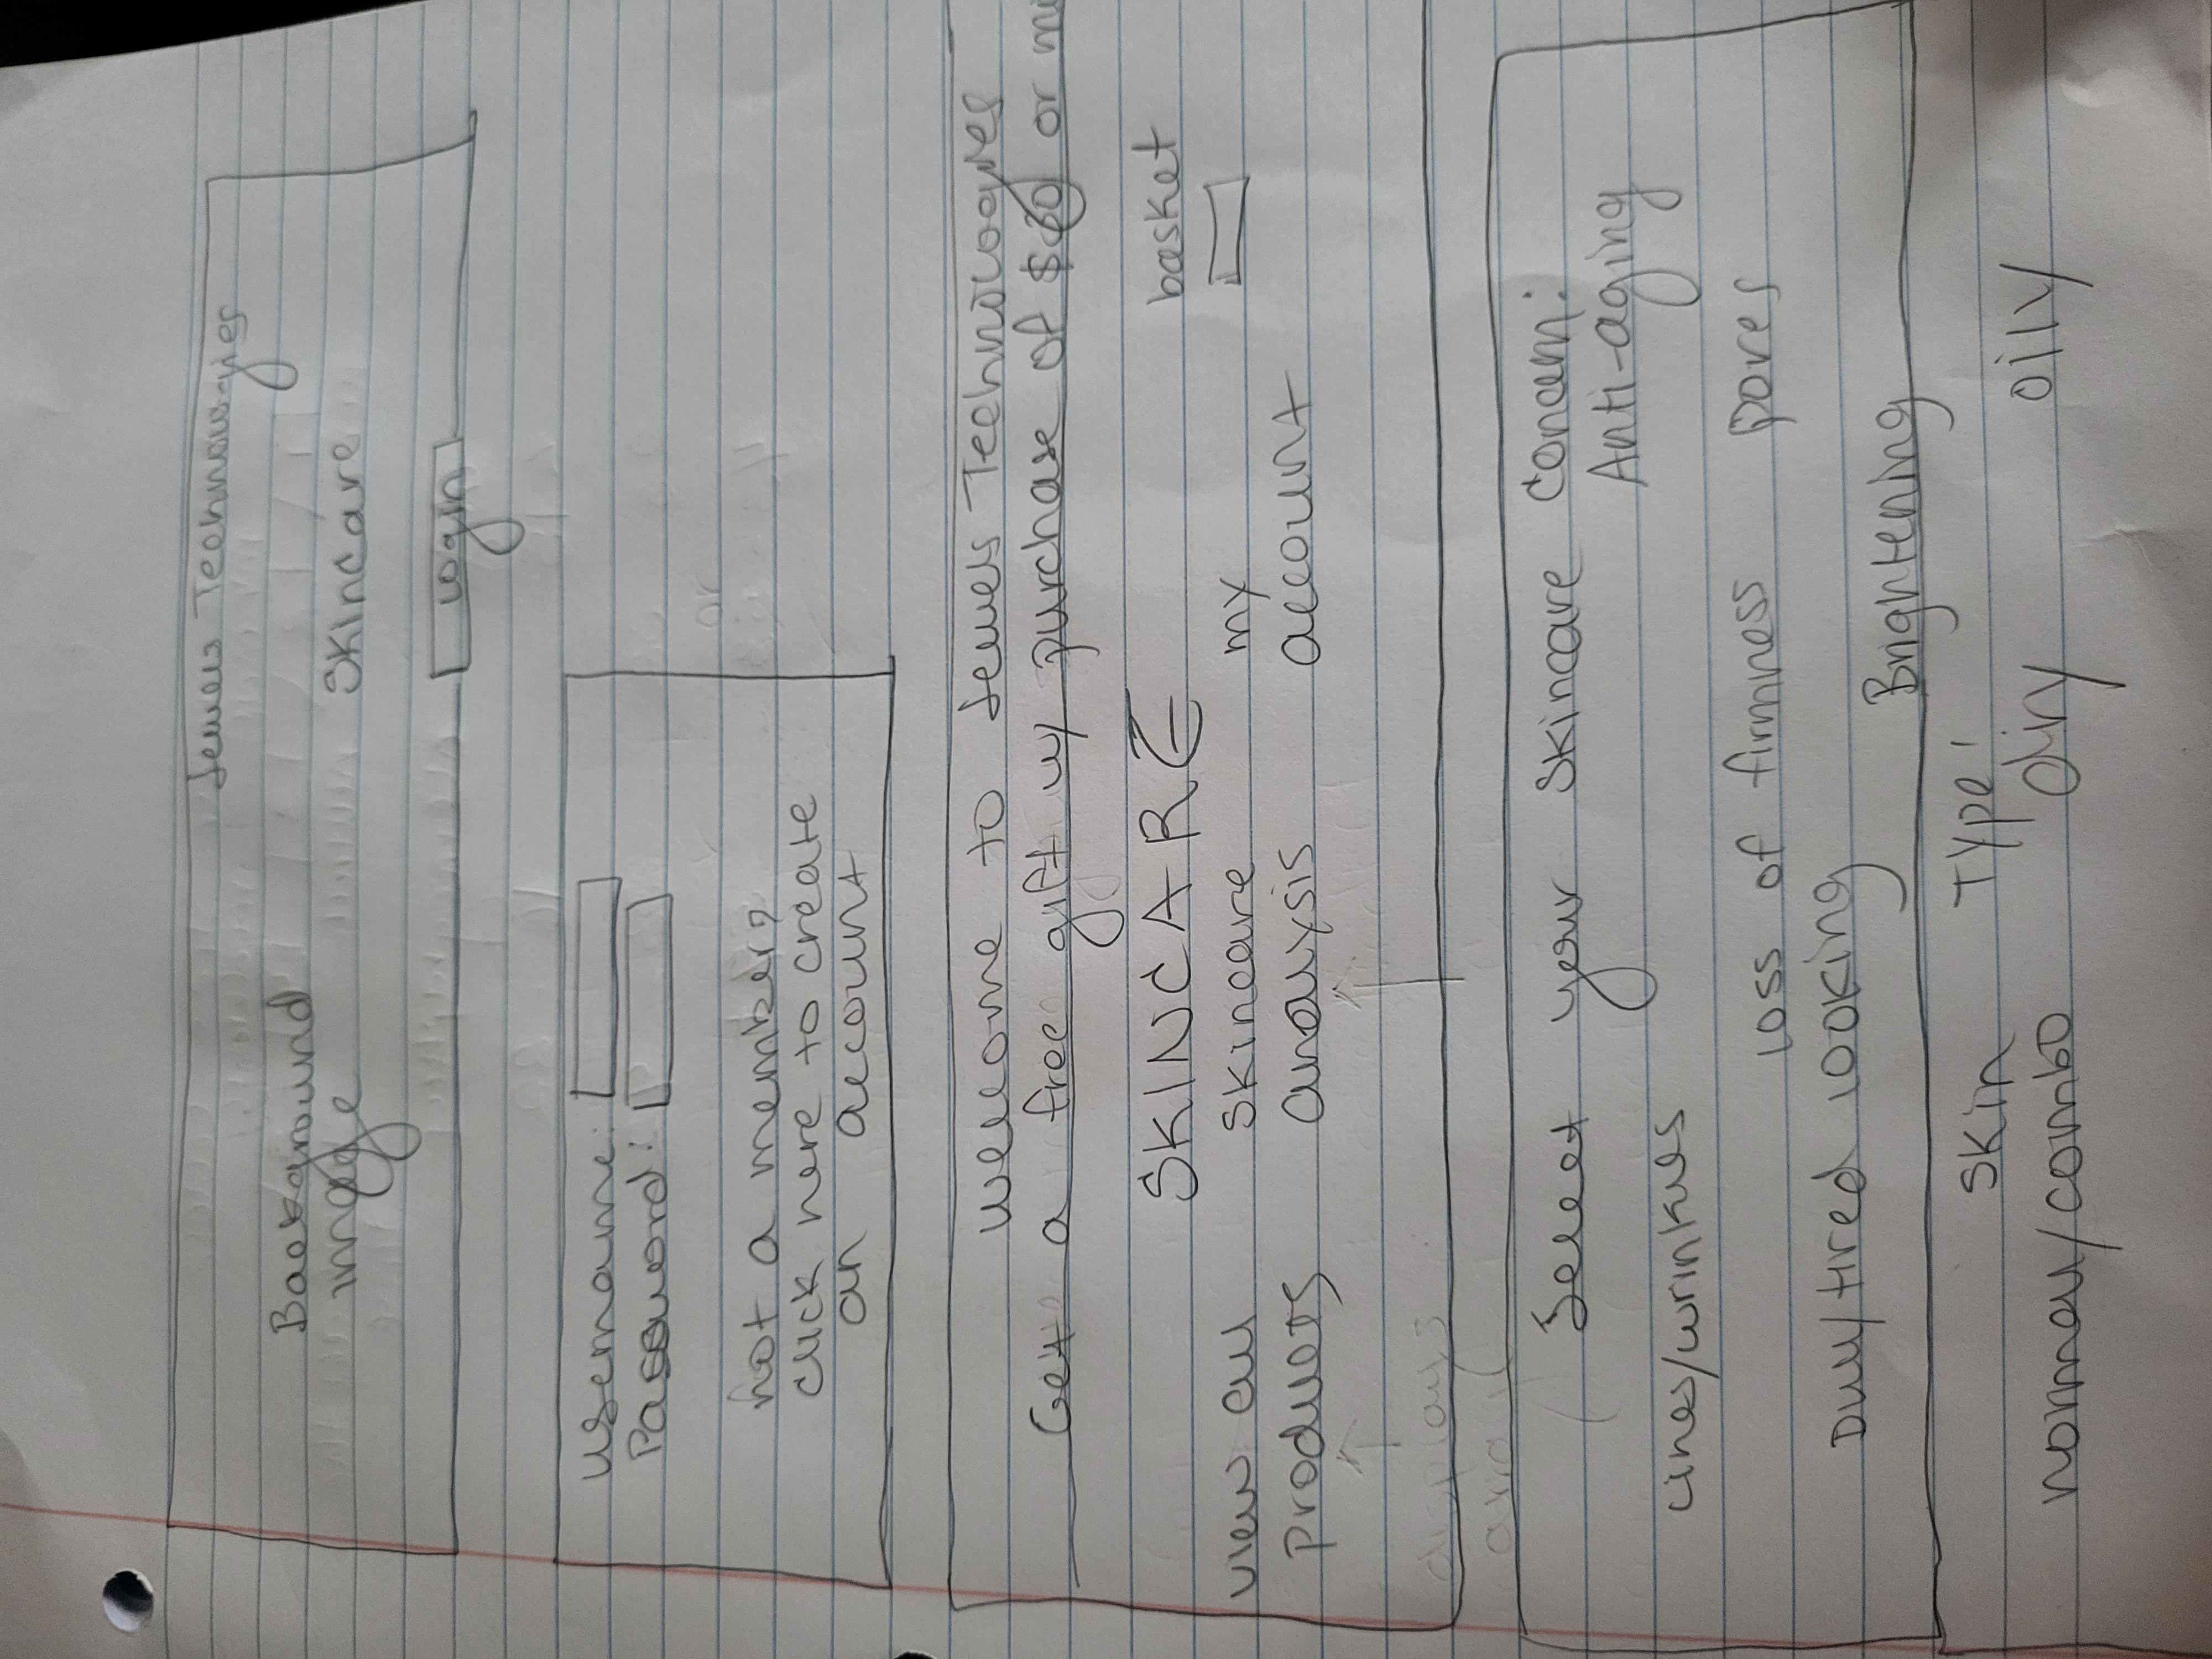 Jewels Technologies
Background
image
Skincare
login
username:
Password:
or
not a member?
click here to create
an account
welcome to Jewels Technologies
Get a free gift w/ purchase of $60 or
SKINCARE
basket
view all skincare my
products analysis account
displays
array
Select your skincare concern:
Anti-aging
Lines/wrinkles
Loss of firmness pores
Dull/tired looking
Brightening
Skin Type:
normal/combo dry oily